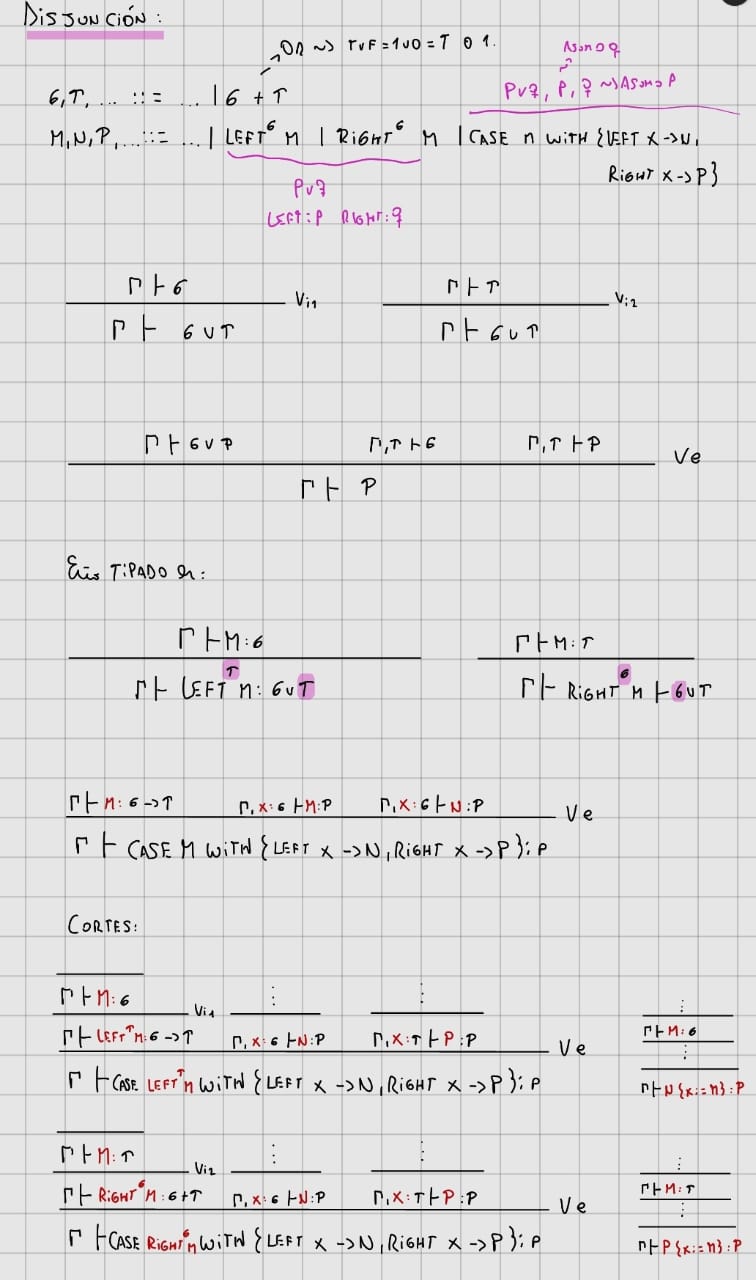 DISJUNCIÓN:
OR ~> TvF = 1v0 = T o 1.
Asumo q
σ, τ, ... ::= ... | σ + τ
Pvq, P, q ~> Asumo P
M, N, P, ... ::= ... | LEFT^σ M | RIGHT^σ M | CASE M WITH {LEFT X -> N,
RIGHT X -> P}
Pvq
LEFT: P RIGHT: q
Γ ⊢ σ Γ ⊢ τ
Vi1 Vi2
Γ ⊢ σ ∪ τ Γ ⊢ σ ∪ τ
Γ ⊢ σ ∨ P Γ, τ ⊢ σ Γ, τ ⊢ P
Ve
Γ ⊢ P
TIPADO
Γ ⊢ M: σ Γ ⊢ M: τ
Γ ⊢ LEFT^τ M: σ ∪ τ Γ ⊢ RIGHT^σ M ⊢ σ ∪ τ
Γ ⊢ M: σ -> τ Γ, X: σ ⊢ M: P Γ, X: σ ⊢ N: P
Ve
Γ ⊢ CASE M WITH {LEFT X -> N, RIGHT X -> P}: P
CORTES:
Γ ⊢ M: σ ⋮ ⋮ ⋮
Vi1
Γ ⊢ LEFT^τ M: σ -> τ Γ, X: σ ⊢ N: P Γ, X: τ ⊢ P: P Γ ⊢ M: σ
Ve ⋮
Γ ⊢ CASE LEFT^τ M WITH {LEFT X -> N, RIGHT X -> P}: P Γ ⊢ N{X:=M}: P
Γ ⊢ M: τ ⋮ ⋮ ⋮
Vi2
Γ ⊢ RIGHT^σ M: σ + τ Γ, X: σ ⊢ N: P Γ, X: τ ⊢ P: P Γ ⊢ M: τ
Ve ⋮
Γ ⊢ CASE RIGHT^σ M WITH {LEFT X -> N, RIGHT X -> P}: P Γ ⊢ P{X:=M}: P